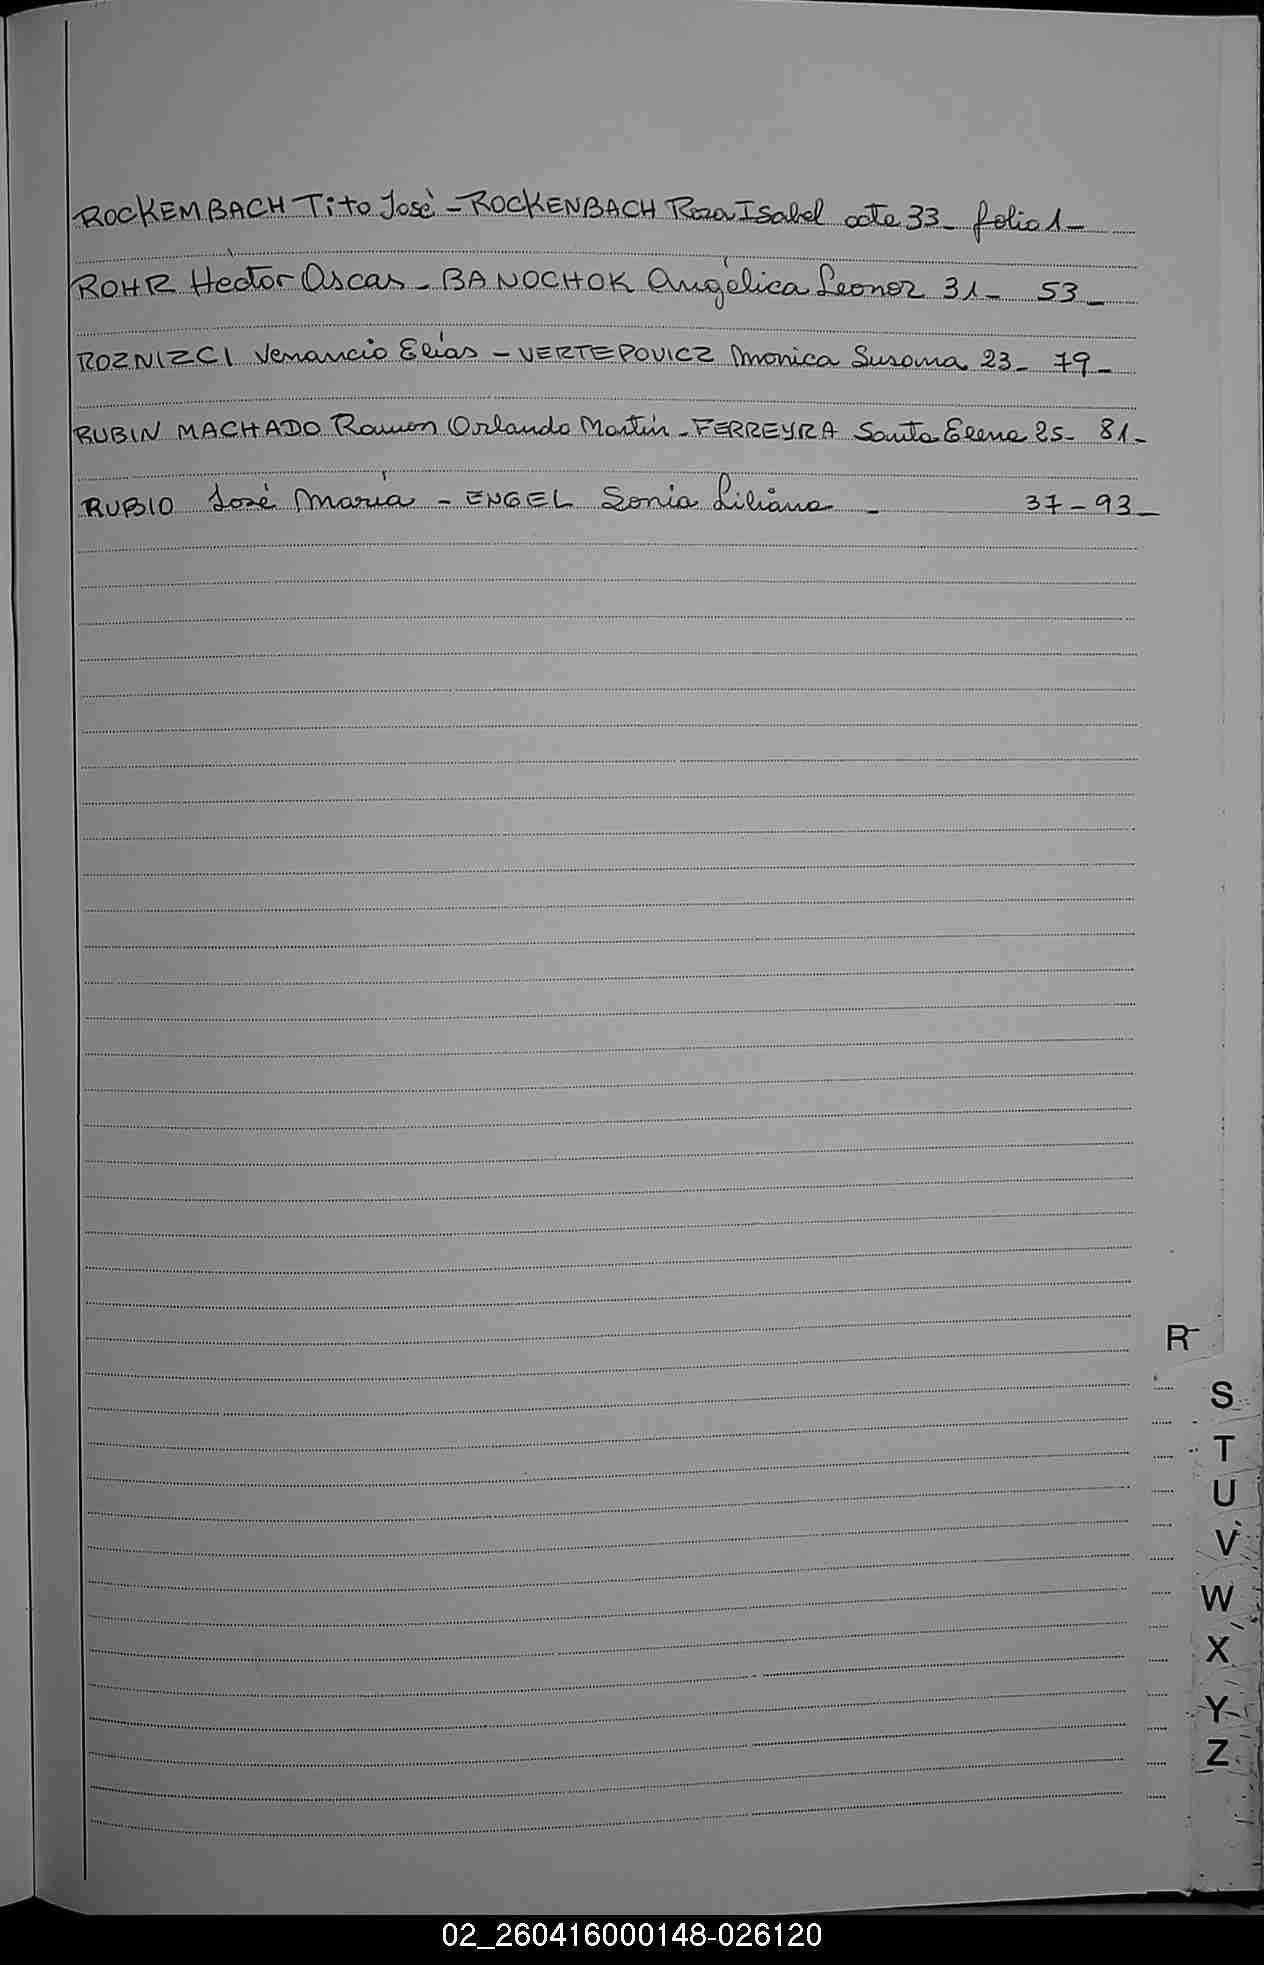 ROCKEMBACH Tito José - ROCKENBACH Rosa Isabel acta 33 - folio 1 -
ROHR Héctor Oscar - BANOCHOK Angélica Leonor 31 - 53 -
ROZNIZCI Venancio Elías - VERTEPOVICZ Monica Susana 23 - 79 -
RUBIN MACHADO Ramon Orlando Martín - FERREYRA Santa Elena 25 - 81 -
RUBIO José María - ENGEL Sonia Liliana - 37 - 93 -
R
S
T
U
V
W
X
Y
Z
02_260416000148-026120